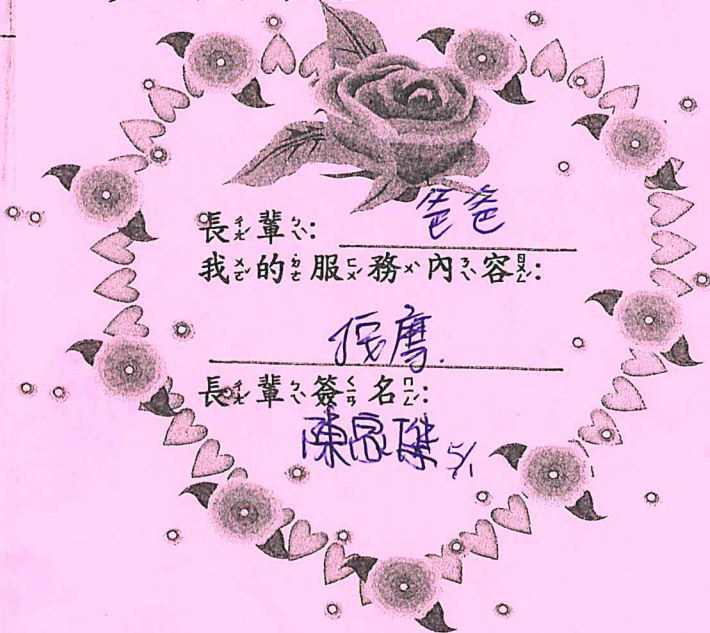 長輩: 爸爸
我的服務內容:
按摩.
長輩簽名:
陳 5/1